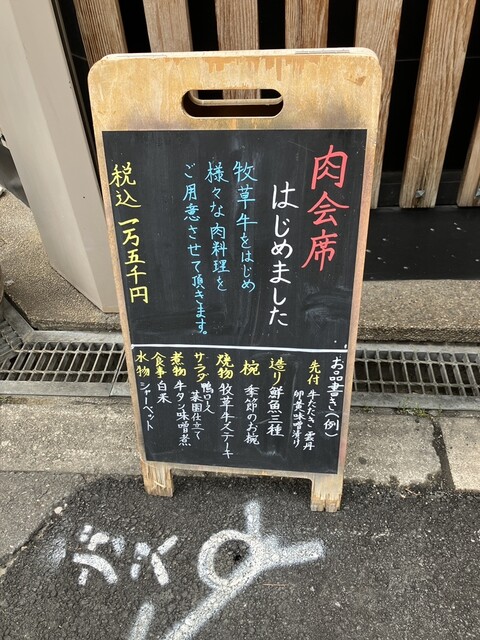 肉会席
はじめました
牧草牛をはじめ
様々な肉料理を
ご用意させて頂きます。
税込 一万五千円
お品書き（例）
先付 牛たたき 雲丹
卵黄味噌漬り
造り 鮮魚三種
椀 季節のお椀
焼物 牧草牛ステーキ
サラダ 鴨ロース
菜園仕立て
煮物 牛タン味噌煮
食事 白米
水物 シャーベット